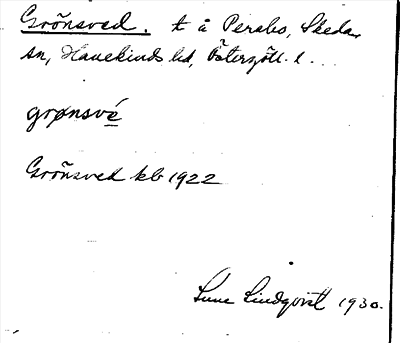 Grönsved. t å Perabo, Skeda
sn, Hanekinds hd, Östergötl. l...
grønsvé
Grönsved kb 1922
Sune Lindqvist 1930.